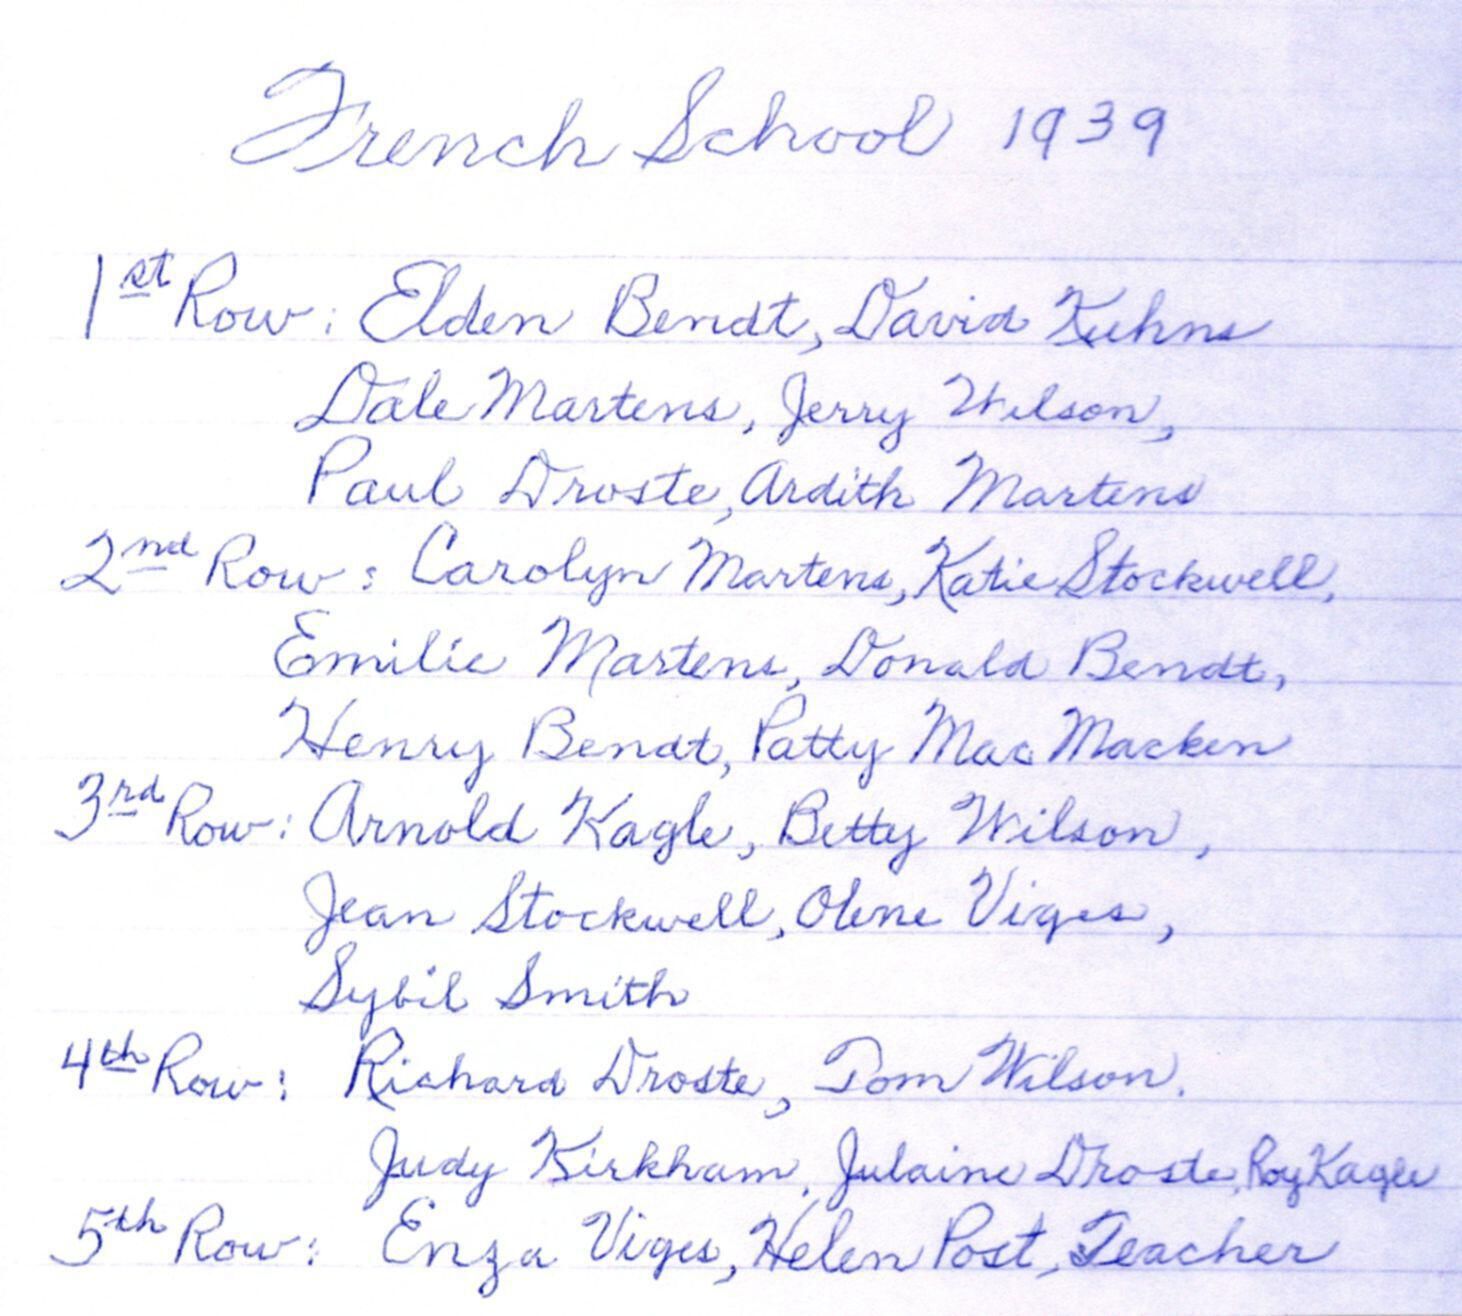 French School 1939
1st Row: Elden Bendt, David Kuhns
Dale Martens, Jerry Wilson,
Paul Droste, Ardith Martens
2nd Row: Carolyn Martens, Katie Stockwell,
Emilie Martens, Donald Bendt,
Henry Bendt, Patty Mac Macken
3rd Row: Arnold Kagle, Betty Wilson,
Jean Stockwell, Olene Viges,
Sybil Smith
4th Row: Richard Droste, Tom Wilson.
Judy Kirkham, Julaine Droste, Roy Kagle
5th Row: Enza Viges, Helen Post, Teacher